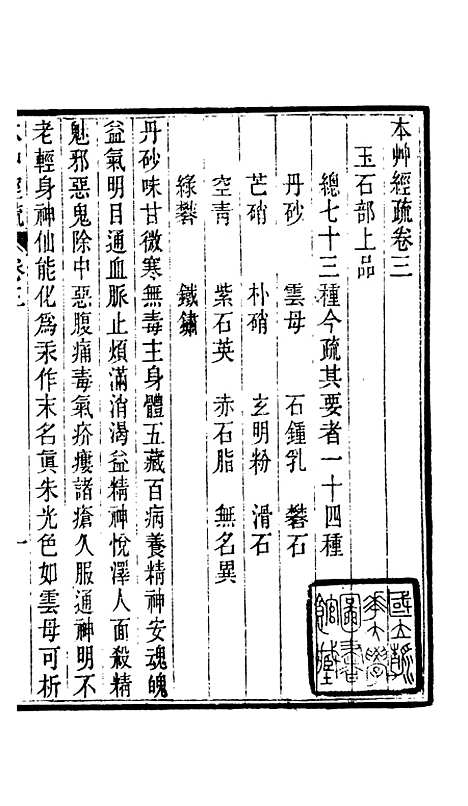 本艸經疏卷三
玉石部上品
總七十三種今疏其要者一十四種
丹砂 雲母 石鍾乳 礬石
芒硝 朴硝 玄明粉 滑石
空青 紫石英 赤石脂 無名異
綠礬 鐵鏽
丹砂味甘微寒無毒主身體五藏百病養精神安魂魄
益氣明目通血脈止煩滿消渴益精神悅澤人面殺精
魅邪惡鬼除中惡腹痛毒氣疥瘻諸瘡久服通神明不
老輕身神仙能化爲汞作末名眞朱光色如雲母可析
卷三
一